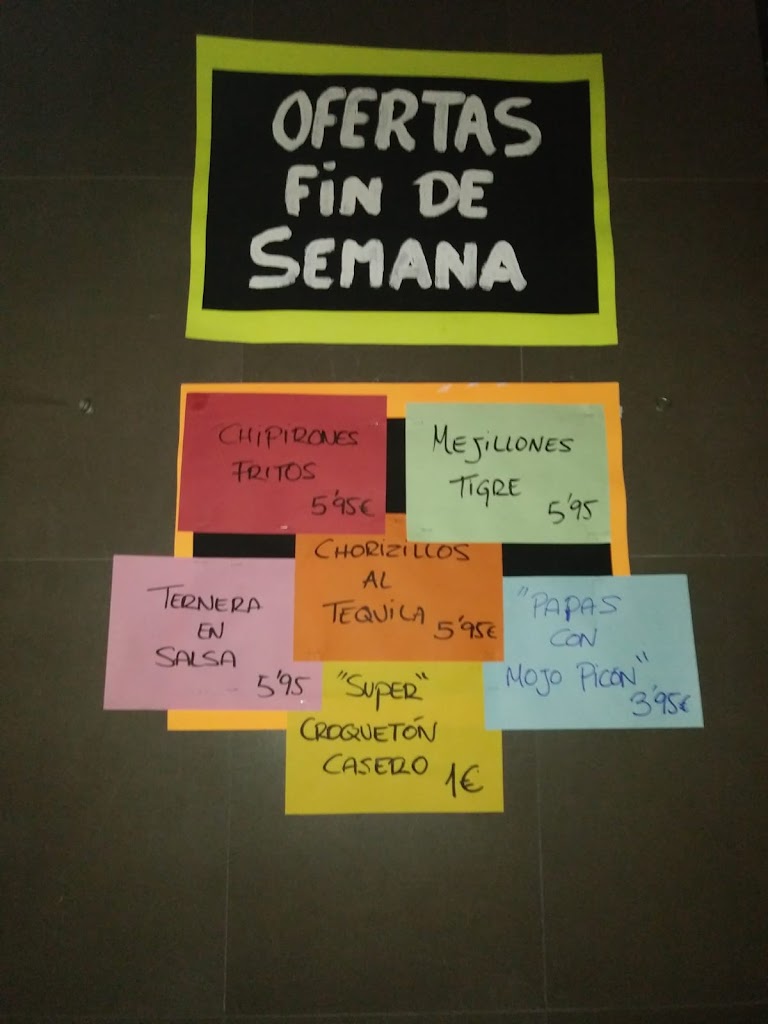 OFERTAS
FIN DE
SEMANA
CHIPIRONES
FRITOS
5'95€
MEJILLONES
TIGRE
5'95
CHORIZILLOS
AL
TEQUILA
5'95€
TERNERA
EN
SALSA
5'95
"PAPAS
CON
MOJO PICON"
3'95€
"SUPER"
CROQUETÓN
CASERO
1€